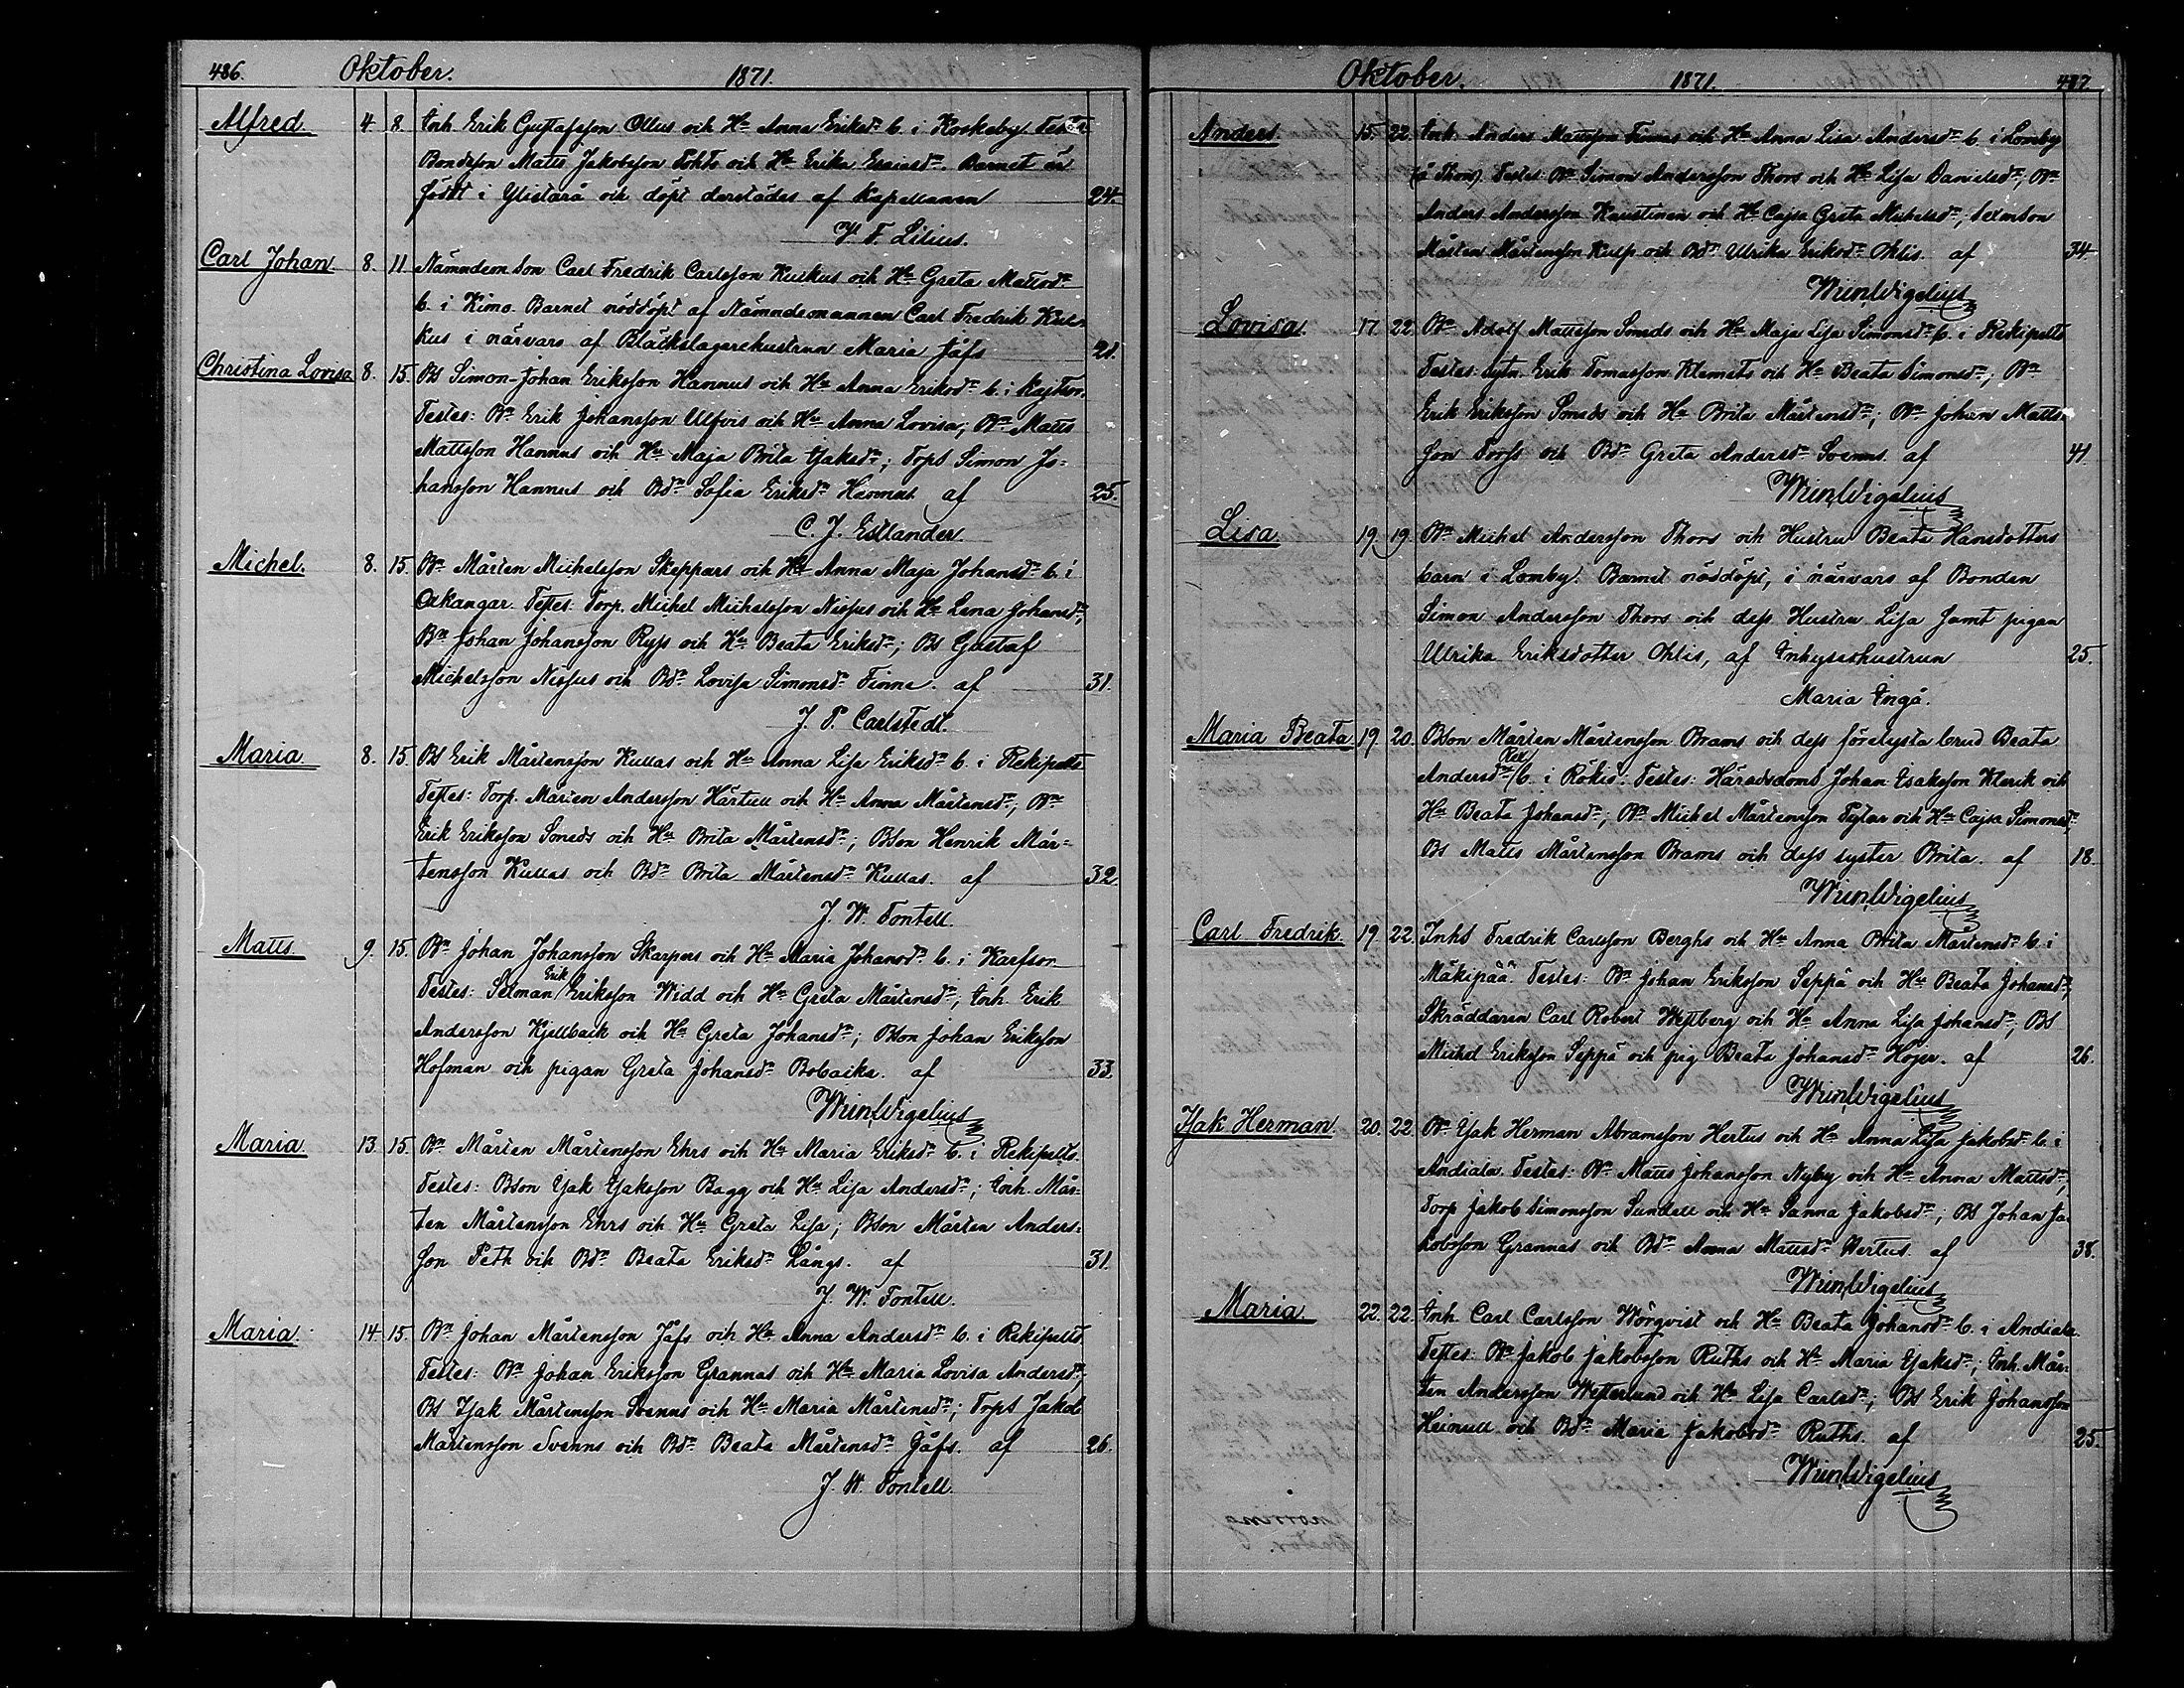 486. Oktober. 1871.
Alfred. 4 8 Inh. Erik Gustafsson Ollus och Hu Anna Eriksdr b. i Koskeby Testes
Bondeson Matts Jakobsson och Hu Erika Esaiasdr. Barnet är
födt i Ylistarå och döpt derstädes af Kapellanen 24.
Y. F. Lilius.
Carl Johan 8. 11 Nämndem son Carl Fredrik Carlsson Kuckus och Hu Greta Mattsdr
b. i Kimo. Barnet nöddöpt af Nämndemannen Carl Fredrik Kuc-
kus i närvaro af Bläckslagarehustrun Maria Jåfs 21.
Christina Lovisa 8. 15. Bs Simon-Johan Eriksson Hannus och Hu Anna Eriksdr b. i Kaitsor.
Testes: Bn Erik Johansson Ulfvis och Hu Anna Lovisa; Bn Matts
Mattsson Hannus och Hu Maja Brita Isaksdr; Torps Simon Jo-
hansson Hannus och Bdr Sofia Eriksdr Hannus af 25.
C. J. Estlander
Michel. 8. 15. Bn Mårten Michelsson Skeppars och Hu Anna Maja Johansdr b. i
Oxkangar. Testes: Torp. Michel Michelsson Nissus och Hu Lena Johansdr;
Bn Johan Johansson Ryss och Hu Beata Eriksdr; Bs Gustaf
Michelsson Nissus och Bdr Lovisa Simonsdr Finne. af 31.
J. P. Carlstedt.
Maria 8. 15. Bs Erik Mårtensson Kullas och Hu Anna Lisa Eriksdr b. i Rekipelto
Testes: Torp. Mårten Andersson Härtull och Hu Anna Mårtensdr; Bn
Erik Eriksson Smeds och Hu Brita Mårtensdr; Bson Henrik Mår-
tensson Kullas och Bdr Brita Mårtensdr Kullas. af 32.
J. W. Fontell.
Matts 9. 15. Bn Johan Johansson Skarpers och Hu Maria Johansdr b. i Karfsor
Testes: Selman Erik Eriksson Widd och Hu Greta Mårtensdr; Inh. Erik
Andersson Kjellback och Hu Greta Johansdr; Bson Johan Eriksson
Hofman och pigan Greta Johansdr Bobacka. af 33.
Wm Wigelius
Maria 13. 15. Bn Mårten Mårtensson Ehrs och Hu Maria Eriksdr b. i Rekipelto.
Testes: Bson Isak Isaksson Bagg och Hu Lisa Andersdr; Inh. Mår-
ten Mårtensson Ehrs och Hu Greta Lisa; Bson Mårten Anders-
son Peth och Bdr Beata Eriksdr Långs. af 31.
J. W. Fontell.
Maria. 14. 15. Bn Johan Mårtensson Jåfs och Hu Anna Andersdr b. i Rekipelto.
Testes: Bn Johan Eriksson Grannas och Hu Maria Lovisa Andersdr;
Bs Isak Mårtensson Svenns och Hu Maria Mårtensdr; Torps Jakob
Mårtensson Svenns och Bdr Beata Mårtensdr Jåfs. af 26.
J. W. Fontell.
Oktober. 1871. 487.
Anders. 15. 22. Inh. Anders Mattsson Finnas och Hu Anna Lisa Andersdr b. i Lomby
(å Thors). Testes: Bn Simon Andersson Thors och Hu Lisa Danielsdr; Bn
Anders Andersson Kaustinen och Hu Cajsa Greta Michelsdr; Sexmson
Mårten Mårtensson Kulp och Bdr Ulrika Eriksdr Ohlis. af 34.
Wm Wigelius
Lovisa. 17. 22. Bn Adolf Mattsson Smeds och Hu Maja Lisa Simonsdr b. i Rekipelto
Testes: sytn. Erik Tomasson Klemets och Hu Beata Simonsdr; Bn
Erik Eriksson Smeds och Hu Brita Mårtensdr; Bn Johan Matts-
son Torfs och Bdr Greta Andersdr Svenns. af 41.
Wm Wigelius
Lisa 19. 19. Bn Michel Andersson Thors och Hustru Beata Hansdotters
barn i Lomby. Barnet nöddöpt, i närvaro af Bonden
Simon Andersson Thors och dess Hustru Lisa samt pigan
Ulrika Eriksdotter Ohlis, af Inhyseshustrun 25.
Maria Ingå.
Maria Beata 19. 20. Bson Mårten Mårtensson Brams och dess förelysta brud Beata
Andersdr Rex b. i Rökiö: Testes: Häradsdoms Johan Isaksson Klerik och
Hu Beata Johansdr; Bn Michel Mårtensson Tytar och Hu Cajsa Simonsdr;
Bs Matts Mårtensson Brams och dess syster Brita. af 18.
Wm Wigelius
Carl Fredrik. 19. 22. Inhs Fredrik Carlsson Berghs och Hu Anna Brita Mårtensdr b. i
Mäkipää. Testes: Bn Johan Eriksson Seppä och Hu Beata Johansdr;
Skräddaren Carl Robert Westberg och Hu Anna Lisa Johansdr; Bs
Michel Eriksson Seppä och pig. Beata Johansdr Hojer. af 26.
Wm Wigelius
Isak Herman 20. 22. Bn Isak Herman Abramsson Hertus och Hu Anna Lisa Jakobsdr b. i
Andiala. Testes: Bn Matts Johansson Nyby och Hu Anna Mattsdr;
Torp Jakob Simonsson Sundell och Hu Sanna Jakobsdr; Bs Johan Ja-
kobsson Grannas och Bdr Anna Mattsdr Hertus. af 38.
Wm Wigelius
Maria 22. 22. Inh. Carl Carlsson Wörqvist och Hu Beata Johansdr b. i Andiala.
Testes: Bn Jakob Jakobsson Ruths och Hu Maria Isaksdr; Inh. Mår-
ten Andersson Westerlund och Hu Lisa Carlsdr; Bs Erik Johansson
Heinull och Bdr Maria Jakobsdr Ruths. af 25.
Wm Wigelius